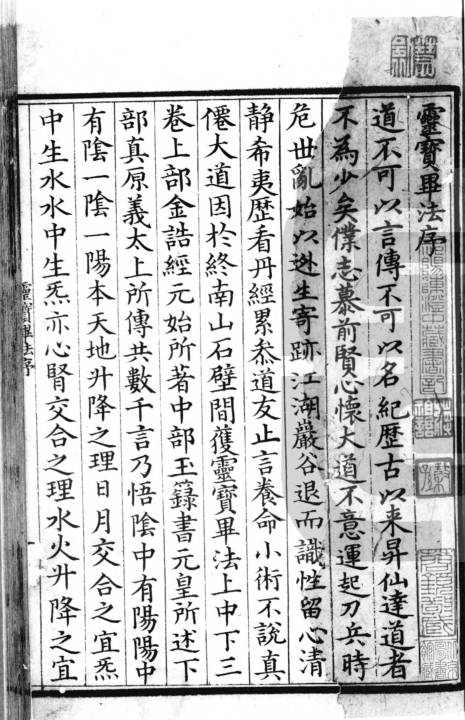 靈寶畢法序
道不可以言傳不可以名紀歷古以来昇仙達道者
不為少矣僕志慕前賢心懷大道不意運起刀兵時
危世亂始以逃生寄跡江湖巖谷退而識性留心清
静希夷歷看丹經累叅道友止言養命小術不說真
僊大道因於終南山石壁間獲靈寶畢法上中下三
卷上部金誥經元始所著中部玉籙書元皇所述下
部真原義太上所傳共數千言乃悟陰中有陽陽中
有陰一陰一陽本天地升降之理日月交合之宜炁
中生水水中生炁亦心腎交合之理水火升降之宜
靈寶畢法序